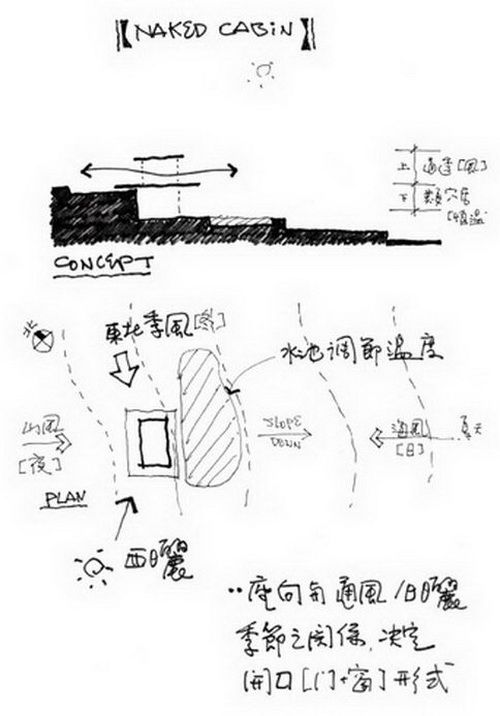 【NAKED CABIN】
上 通透[風]
下 類穴居
[恒温]
CONCEPT
北
東北季風[冬]
水池调節温度
山風
[夜]
SLOPE
DOWN
海風
[日]
夏天
PLAN
西日曬
..座向与通風/日曬
季節之関係,决定
開口[门+窗]形式